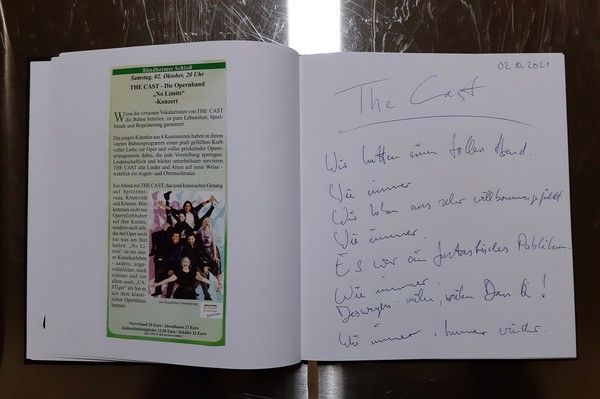 Bündheimer Schloß
Samstag, 02. Oktober, 20 Uhr
THE CAST - Die Opernband
„No Limits“
-Konzert
Wenn die virtuosen Vokalartisten von THE CAST
die Bühne betreten, ist pure Lebenslust, Spiel-
freude und Begeisterung garantiert.
Die jungen Künstler aus 4 Kontinenten haben in ihrem
vierten Bühnenprogramm einen prall gefüllten Korb
voller Liebe zur Oper und voller prickelnder Opern-
arrangements dabei, die jede Vorstellung sprengen.
Leidenschaftlich und höchst unterhaltsam servieren
THE CAST alle Lieder und Arien auf neue Weise -
wahrlich ein Augen- und Ohrenschmaus.
Ein Abend mit THE CAST, das sind klassischer Gesang
auf Spitzenni-
veau, Kreativität
und Können. Hier
kommen nicht nur
Opernliebhaber
auf ihre Kosten,
sondern auch alle,
die mit Oper noch
nie was am Hut
hatten. „No Li-
mits“ ist ein neu-
es Klassikerlebnis
- anders, unge-
wöhnlicher, noch
schöner und vor
allem noch „CA-
STiger“ als Sie es
aus dem klassi-
schen Opernhaus
kennen.
Vorverkauf 25 Euro / Abendkasse 27 Euro
Kulturclubmitglieder 12,50 Euro / Schüler 13 Euro
02.10.2021
The Cast
Wir hatten einen tollen Abend.
Wie immer.
Wir haben uns sehr willkommen gefühlt
Wie immer.
Es war ein fantastisches Publikum.
Wie immer.
Deswegen: vielen, vielen Dank!
Wie immer, immer wieder.